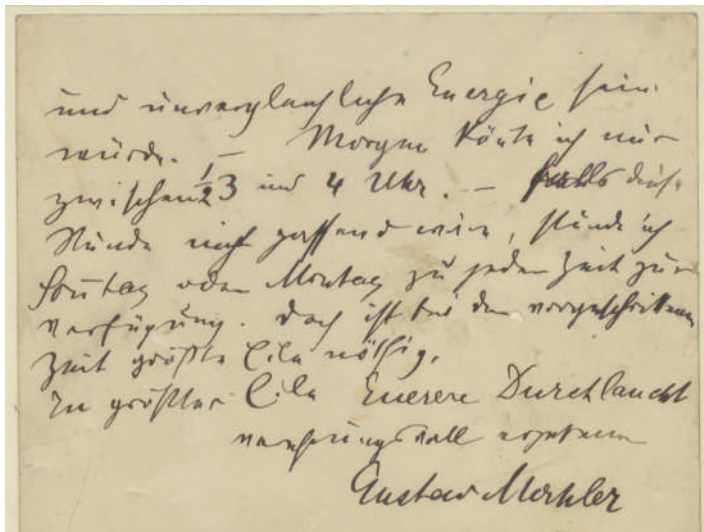 und unvergleichliche Energie sein
würde. – Morgen könnte ich nur
zwischen ½3 und 4 Uhr. – falls diese
Stunde nicht passend wäre, stünde ich
Sonntag oder Montag zu jeder Zeit zur
Verfügung. Doch ist bei der vorgeschrittenen
Zeit größte Eile nöthig.
In größter Eile Euerer Durchlaucht
verehrungsvoll ergebener
Gustav Mahler